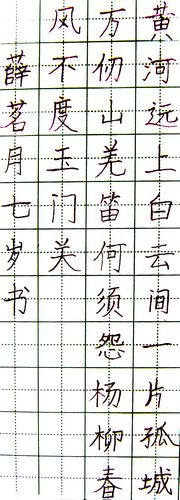 黄河远上白云间一片孤城
万仞山羌笛何须怨杨柳春
风不度玉门关
薛茗月七岁书